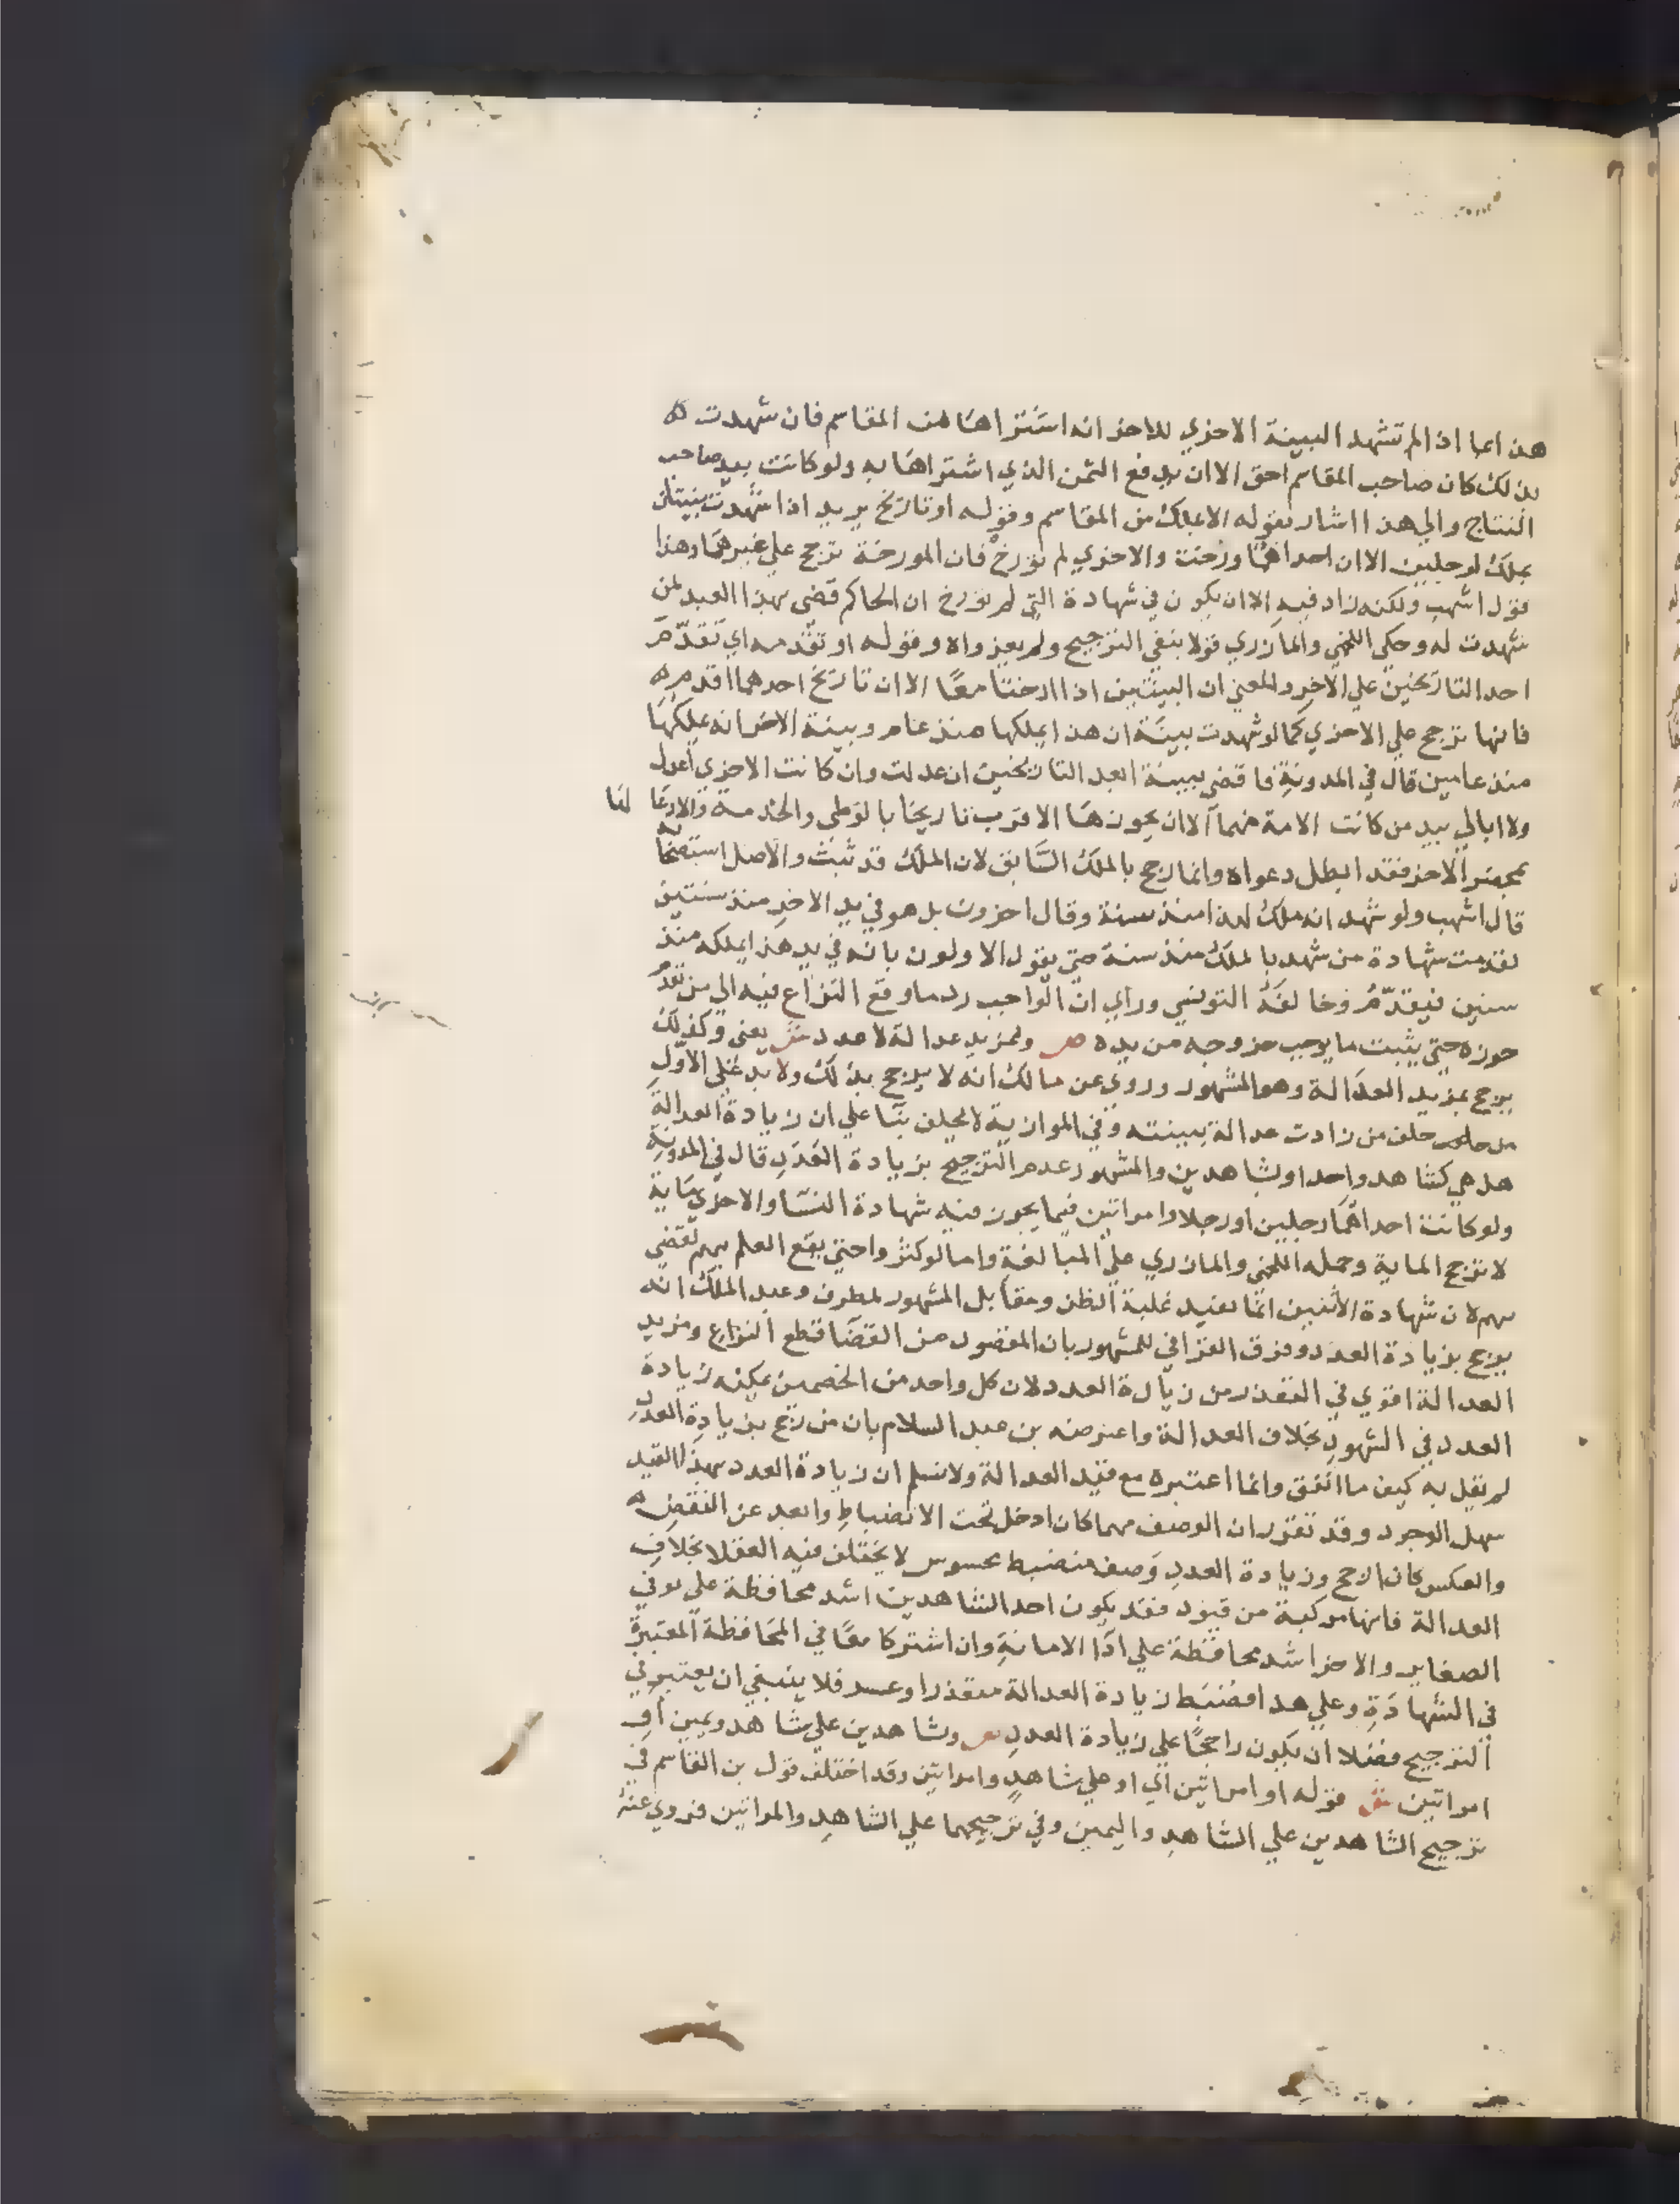 هذا اعا اذا لم تشهد البينة الاخري للاخر انه اشتراها من المقاسم فان شهدت ه
بذلك كان صاحب المقاسم احق الا ان يدفع الثمن الذي اشتراها به ولو كانت بيد صاحب
النتاج والي هذا اشار بقوله الا بملك من المقاسم وقوله او تاريخ يريد اذا شهدت بينتان
بملك لرجلين الا ان احداهما ورخت والاخري لم تورخ فان المورخة ترجح علي غيرها وهذا
قول اشهب ولكنه زاد فيه الا ان يكون في شهادة التي لم تورخ ان الحاكم قضي بهذا العبد لمن
شهدت له وحكي اللخمي والمازري قولا بنفي الترجيح ولم يعزواه وقوله او تقدمه اي تقدم
احد التاريخين علي الاخر والمعني ان البينتين اذا ارختا معا الا ان تاريخ احدهما اقدم ه
فانها ترجح علي الاخري كما لو شهدت بينة ان هذا يملكها منذ عام وبينة الاخر انه يملكها
منذ عامين قال في المدونة فاقضي ببينة ابعد التاريخين ان عدلت وان كانت الاخري اعدل
ولا ابالي بيد من كانت الامة منهما الا ان يحوزها الاقرب تاريخا بالوطي والخدمة والادعا لها
بمحضر الاخر فقد ابطل دعواه وانما رجح بالملك السابق لان الملك قد ثبت والاصل استصحابه
قال اشهب ولو شهد انه ملك لهذا منذ سنة وقال اخرون بل هو في يد الاخر منذ سنتين
لقدمت شهادة من شهد بالملك منذ سنة حتي يقول الاولون بانه في يد هذا يملكه منذ
سنين فيقدم وخالفه التونسي وراي ان الواجب رد ما وقع النزاع فيه الي من تقدم
حوزه حتي يثبت ما يوجب خروجه من يده ص ولمزيد عدالة لا عدد ش يعني وكذلك
يرجح بمزيد العدالة وهو المشهور وروي عن مالك انه لا يرجح بذلك ولا بد علي الاول
من حلف من زادت عدالة ببينته وفي الموازية لا يحلف بنا علي ان زيادة العدالة
هل هي كشاهد واحد او بشاهدين والمشهور عدم الترجيح بزيادة العدد قال في المدونة
ولو كانت احداهما رجلين او رجلا وامراتين فيما يجوز فيه شهادة النسا والاخري ماية
لا ترجح الماية وحمله اللخمي والمازري علي المبالغة واما لو كثروا حتي يقع العلم بهم لقضي
بهم لان شهادة الاثنين انما تفيد غلبة الظن ومقابل المشهور لمطرف وعبد الملك انه
يرجح بزيادة العدد وفرق القرافي للمشهور بان المقصود من القضا قطع النزاع ومزيد
العدالة اقوي في التعذر من زيادة العدد لان كل واحد من الخصمين يمكنه زيادة
العدد في الشهود بخلاف العدالة واعترضه بن عبد السلام بان من رجح بزيادة العدد
لم يقل به كيف ما اتفق وانما اعتبره مع قيد العدالة ولا نسلم ان زيادة العدد بهذا القيد
سهل الوجود وقد تقرر ان الوصف مهما كان ادخل تحت الانضباط وابعد عن النقض ه
والعكس كان ارجح وزيادة العدد وصف منضبط محسوس لا يختلف فيه العقلا بخلاف
العدالة فانها مركبة من قيود فقد يكون احد الشاهدين اشد محافظة علي توقي
الصغاير والاخر اشد محافظة علي ادا الامانة وان اشتركا معا في المحافظة المعتبرة
في الشهادة وعلي هذا فضبط زيادة العدالة متعذر او عسر فلا ينبغي ان يعتبر في
الترجيح فضلا ان يكون راجحا علي زيادة العدد ص وشاهدين علي شاهد ويمين او
امراتين ش قوله او امراتين اي او علي شاهد وامراتين وقد اختلف قول بن القاسم في
ترجيح الشاهدين علي الشاهد واليمين وفي ترجيحهما علي الشاهد والمراتين فروي عنه